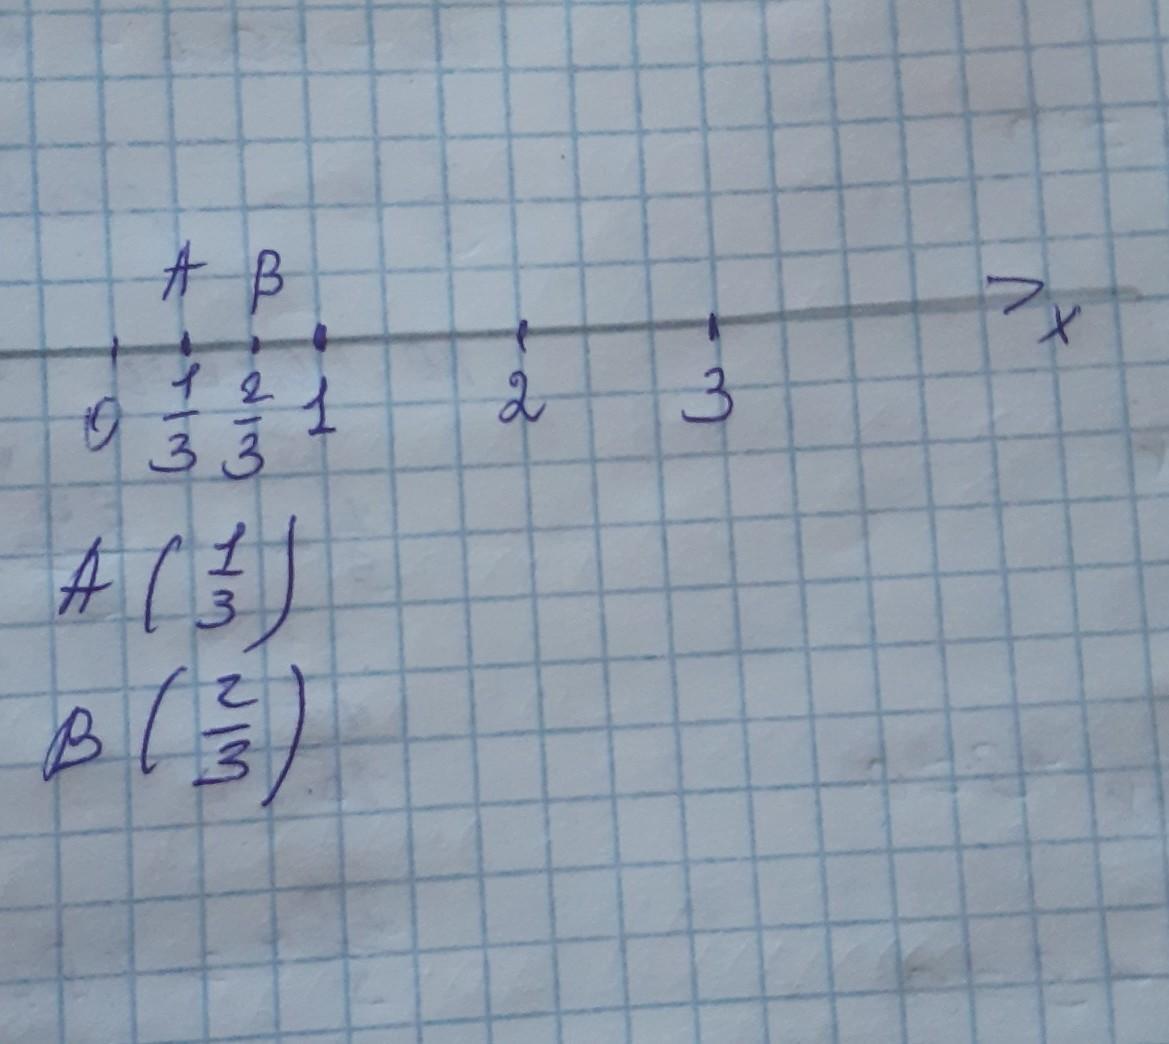 A B
0 1/3 2/3 1 2 3 x
A (1/3)
B (2/3)